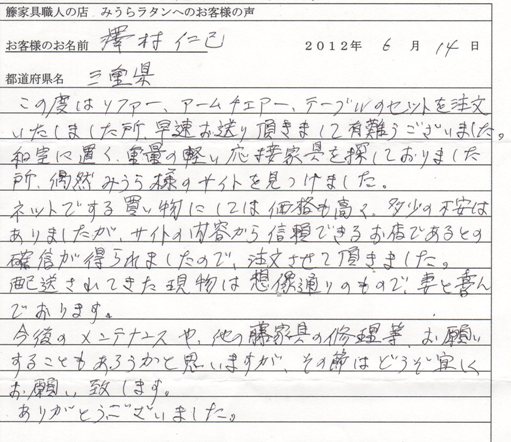 籐家具職人の店 みうらラタンへのお客様の声
お客様のお名前 澤村仁己 2012年 6 月 14 日
都道府県名 三重県
この度はソファー、アームチェアー、テーブルのセットを注文
いたしました所、早速お送り頂きまして有難うございました。
和室に置く、重量の軽い応接家具を探しておりました
所、偶然みうら様のサイトを見つけました。
ネットでする買い物にしては価格も高く、多少の不安は
ありましたが、サイトの内容から信頼できるお店であるとの
確信が得られましたので、注文させて頂きました。
配送されてきた現物は想像通りのもので、妻と喜ん
でおります。
今後のメンテナンスや、他の藤家具の修理等、お願い
することもあろうかと思いますが、その節はどうぞ宜しく
お願い致します。
ありがとうございました。